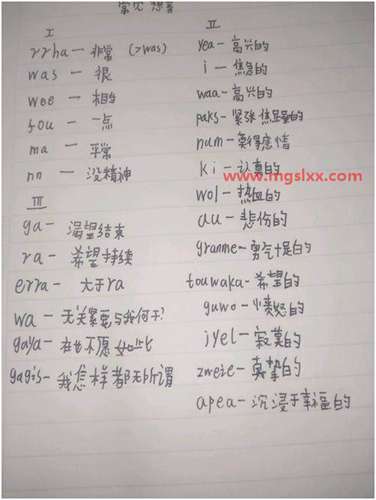 常见想音
I
rrha — 非常 (>was)
was — 很
wee — 相当
fou — 一点
ma — 平常
nn — 没精神
III
ga — 渴望结束
ra — 希望持续
erra — 大于ra
wa — 无关紧要与我何干?
gaya — 在也不愿如此
gagis — 我怎样都无所谓
II
yea — 高兴的
i — 焦急的
waa — 高兴的
paks — 紧张焦虑的
num — 莫得感情
ki — 认真的
www.mgslxx.com
wol — 热血的
au — 悲伤的
granme — 勇气十足的
touwaka — 希望的
guwo — 愤怒的
jyel — 寂寞的
zweie — 真挚的
apea — 沉浸于幸福的